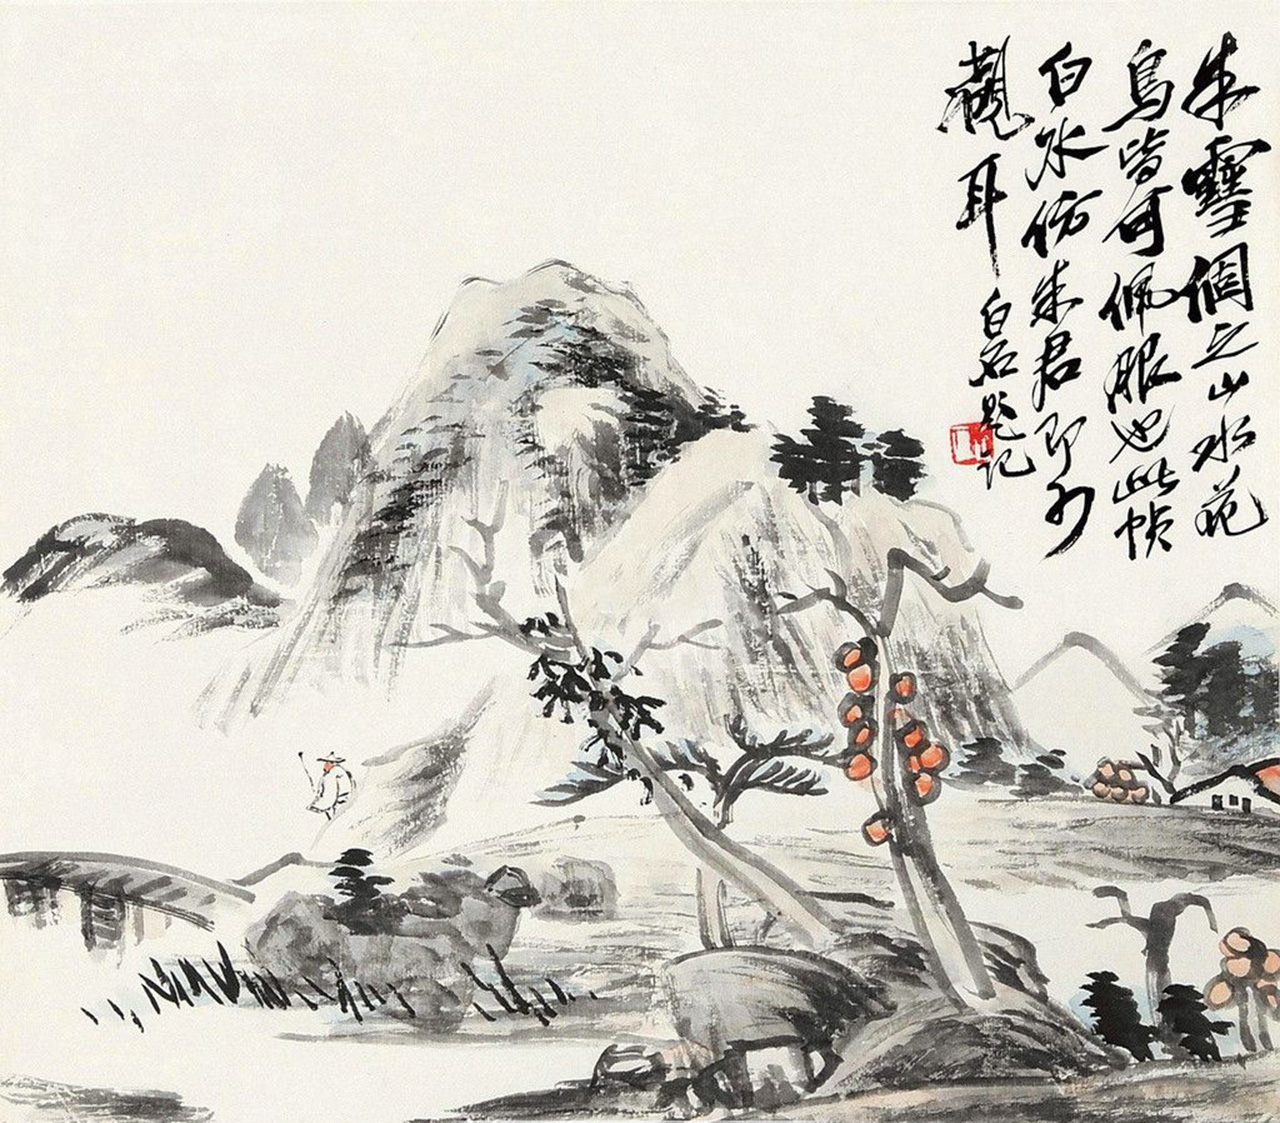 朱雪個之山水花
鳥皆可佩服也此幀
白水仿朱君即可
觀耳
白石題記